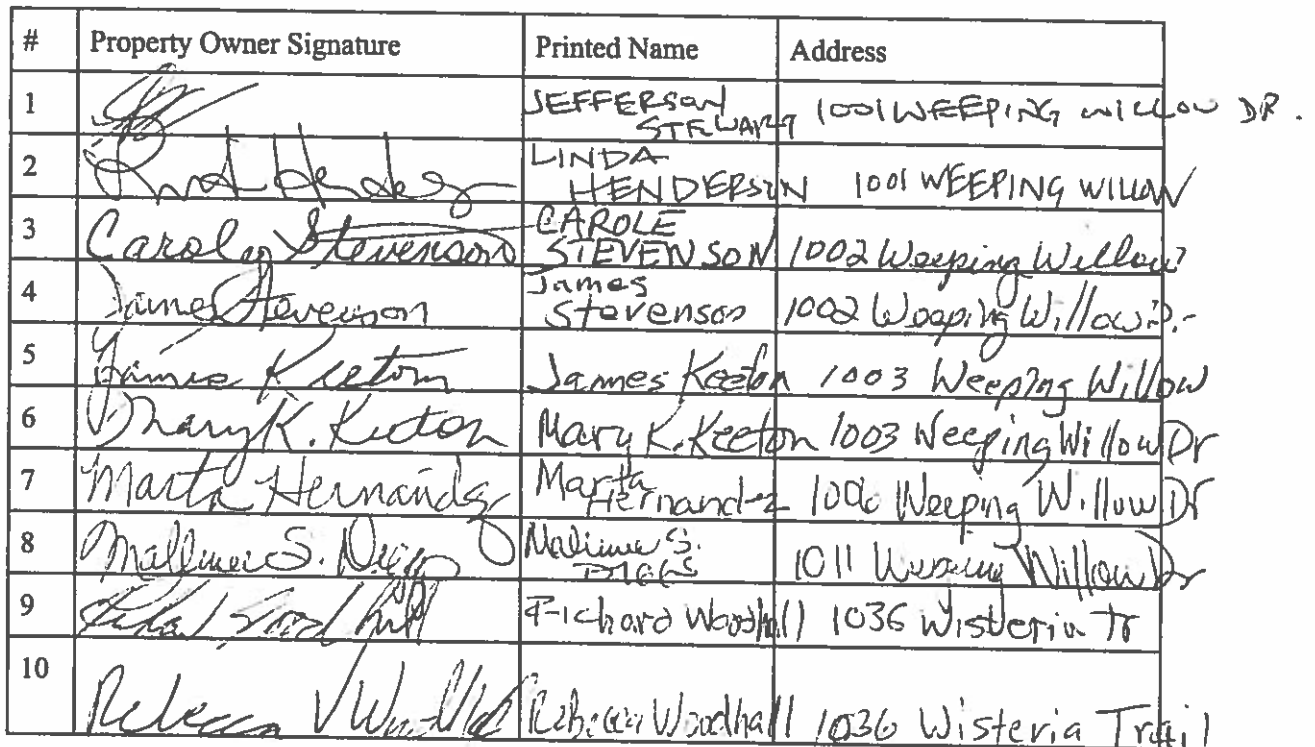 # Property Owner Signature Printed Name Address
1 JEFFERSON STEWART 1001 WEEPING WILLOW DR.
2 LINDA HENDERSON 1001 WEEPING WILLOW
3 Carole Stevenson CAROLE STEVENSON 1002 Weeping Willow
4 James Stevenson James Stevenson 1002 Weeping Willow
5 James Keeton James Keeton 1003 Weeping Willow
6 Mary K. Keeton Mary K. Keeton 1003 Weeping Willow Dr
7 Marta Hernández Marta Hernandez 1006 Weeping Willow Dr
8 S. S. 1011 Weeping Willow Dr
9 Richard Woodhall Richard Woodhall 1036 Wisteria Tr
10 Rebecca V Woodhall Rebecca Woodhall 1036 Wisteria Trail